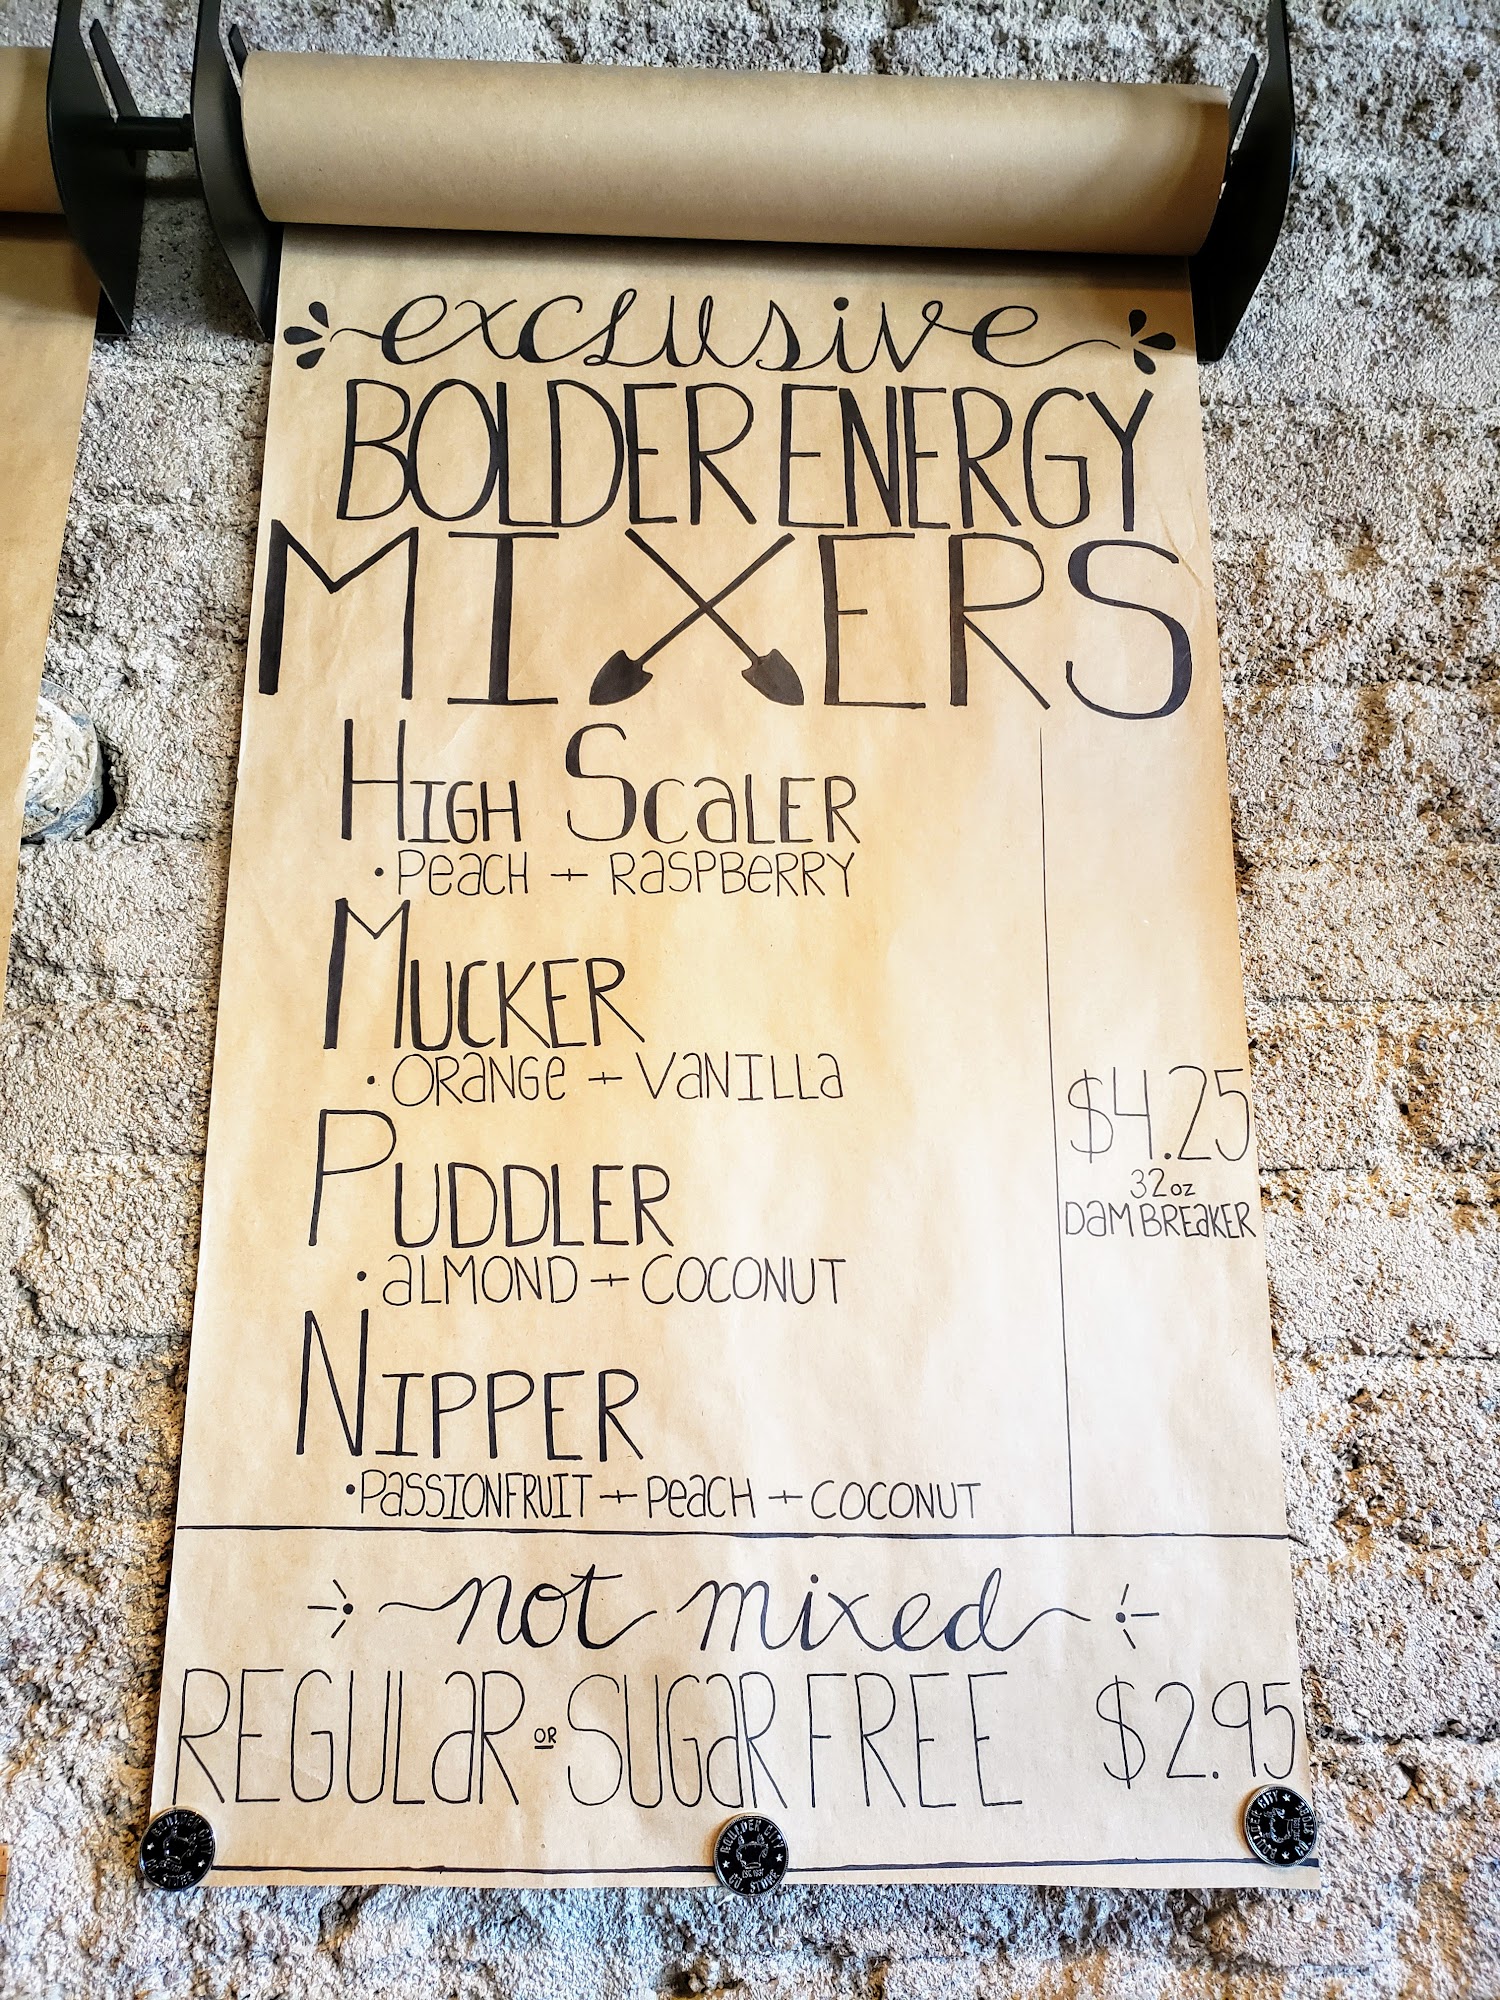 exclusive
BOLDER ENERGY
MIXERS
HIGH SCALER
• PEACH + RASPBERRY
MUCKER
• ORANGE + VANILLA
PUDDLER
• ALMOND + COCONUT
NIPPER
• PASSIONFRUIT + PEACH + COCONUT
$4.25
32oz
DAM BREAKER
not mixed
REGULAR OR SUGAR FREE $2.95
BOULDER CITY
CO STORE
BOULDER CITY
CO STORE
BOULDER CITY
CO STORE